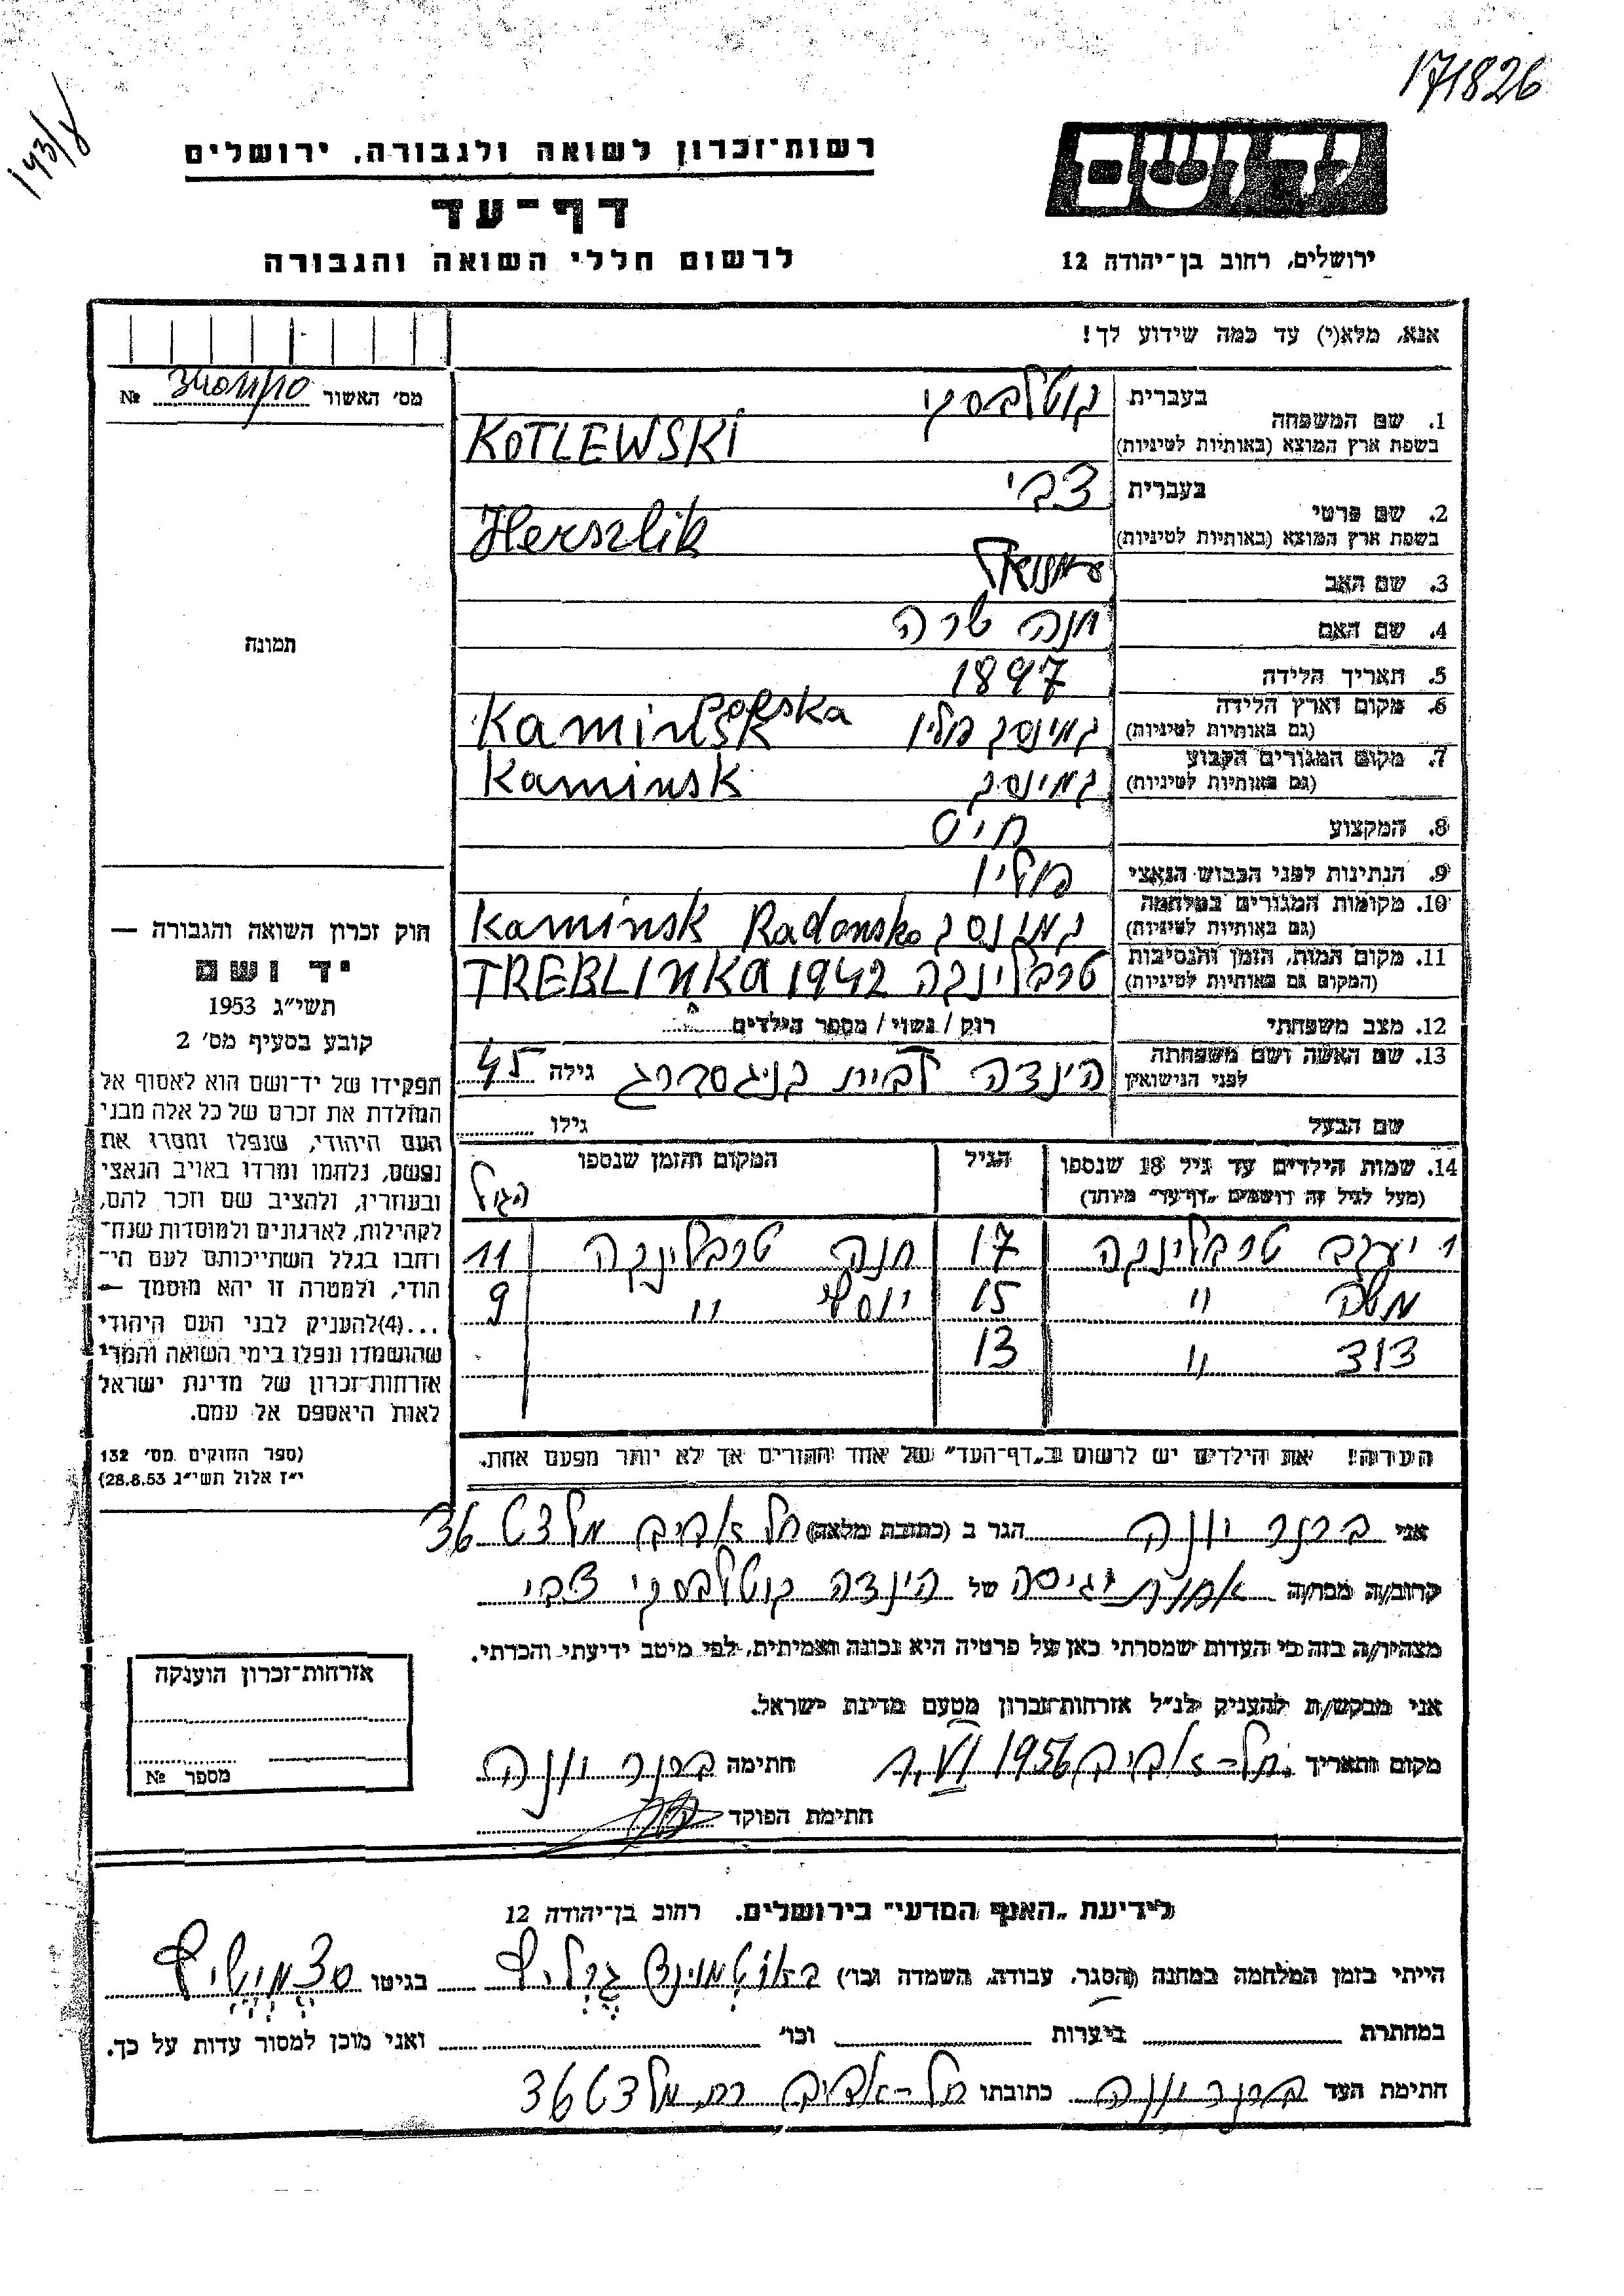 171826
143/8
יד ושם
רשות־זכרון לשואה ולגבורה, ירושלים
דף־עד
לרשום חללי השואה והגבורה
ירושלים, רחוב בן־יהודה 12
אנא, מלא(י) עד כמה שידוע לך!
מס' האשור №
1. שם המשפחה בעברית קוטלבסקי
בשפת ארץ המוצא (באותיות לטיניות) KOTLEWSKI
2. שם פרטי בעברית צבי
בשפת ארץ המוצא (באותיות לטיניות) Herszlik
3. שם האב עמנואל
4. שם האם חנה שרה
5. תאריך הלידה 1897
6. מקום וארץ הלידה (גם באותיות לטיניות) קמינסק פולין Kaminsk Polska
7. מקום המגורים הקבוע (גם באותיות לטיניות) קמינסק Kaminsk
8. המקצוע חיט
9. הנתינות לפני הכבוש הנאצי פולין
10. מקומות המגורים במלחמה (גם באותיות לטיניות) קמינסק Kaminsk Radomsko
11. מקום המות, הזמן והנסיבות (המקום גם באותיות לטיניות) טרבלינקה 1942 TREBLINKA
12. מצב משפחתי רוק / נשוי / מספר הילדים
13. שם האשה ושם משפחתה לפני הנישואין הינדה לבית קניגסברג גילה 45
שם הבעל גילו
14. שמות הילדים עד גיל 18 שנספו
(מעל לגיל זה רושמים „דף־עד" מיוחד)
הגיל
המקום והזמן שנספו
הגיל
יעקב טרבלינקה 17 חנה טרבלינקה 11
משה " 15 יוסף " 9
דוד " 13
הערה! את הילדים יש לרשום ב„דף־העד" של אחד ההורים אך לא יותר מפעם אחת.
תמונה
חוק זכרון השואה והגבורה —
יד ושם
תשי"ג 1953
קובע בסעיף מס' 2
תפקידו של יד־ושם הוא לאסוף אל
המולדת את זכרם של כל אלה מבני
העם היהודי, שנפלו ומסרו את
נפשם, נלחמו ומרדו באויב הנאצי
ובעוזריו, ולהציב שם וזכר להם,
לקהילות, לארגונים ולמוסדות שנח־
רחבו בגלל השתייכותם לעם הי־
הודי, ולמטרה זו יהא מוסמך —
...(4)להעניק לבני העם היהודי
שהושמדו ונפלו בימי השואה והמרי
אזרחות־זכרון של מדינת ישראל
לאות היאספם אל עמם.
(ספר החוקים מס' 132
י"ז אלול תשי"ג 28.8.53)
אני ברנר יונה הגר ב (כתובת מלאה) תל אביב מלצט 36
קרוב/ה מכר/ה אחות וגיסה של הינדה קוטלבסקי צבי
מצהיר/ה בזה כי העדות שמסרתי כאן על פרטיה היא נכונה ואמיתית, לפי מיטב ידיעתי והכרתי.
אני מבקש/ת להעניק לנ"ל אזרחות־זכרון מטעם מדינת ישראל.
מקום ותאריך תל-אביב 1956 חתימה ברנר יונה
חתימת הפוקד
אזרחות־זכרון הוענקה
מספר №
לידיעת „האגף המדעי" בירושלים. רחוב בן־יהודה 12
הייתי בזמן המלחמה במחנה (הסגר, עבודה, השמדה וכו') בגיטו
במחתרת ביערות וכו' ואני מוכן למסור עדות על כך.
חתימת העד ברנר יונה כתובתו תל-אביב רח מלצט 36